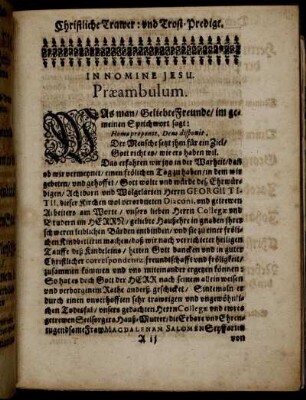 Christliche Trawer: vnd Trost-Predigt.
IN NOMINE JESU.
Præambulum.
WAs man / Geliebte Freunde / im ge-
meinen Sprichwort sagt:
Homo proponit, Deus disponit,
Der Mensche setzt ihm für ein Ziel /
Gott richt es / wie ers haben wil.
Das erfahren wir jtzo in der Warheit / dan
ob wir vermeynet / einen frölichen Tag zu haben / in dem wir
gebeten / vnd gehoffet / Gott wolte vnd würde deß Ehrwür-
digen / Achtbarn vnd Wolgelarten Herrn GEORGII TI-
TII, dieser Kirchen wol verordneten Diaconi, vnd getrewen
Arbeiters am Wort / vnsers lieben Herrn Collegæ vnd
Bruders im HERRN / geliebte Haußehr in gnaden ihrer
schweren leiblichen Bürden entbinden / vnd sie zu einer frölichen
Kindbetterin machen / daß wir nach verrichteter heiligen
Tauffe deß Kindeleins / hetten Gott dancken vnd in guter
Christlicher correspondentz, freundschafft vnd frölgkeit /
zusammen kommen vnd vns miteinander ergetzen können:
So hat es doch Gott der HERR nach seinem allein weisen
vnd verborgenem Rathe anderß geschicket / Sintemaln er
durch einen vnverhofften sehr trawrigen vnd vngewöhnli-
chen Todesfal / vnsers gedachten Herrn Collegæ vnd ewres
getrewen Seelsorgers Hauß-Mutter / die Erbare vnd Ehren-
tugendsame Fraw MAGDALENAM SALOMEN Seyffarten
A ij
von